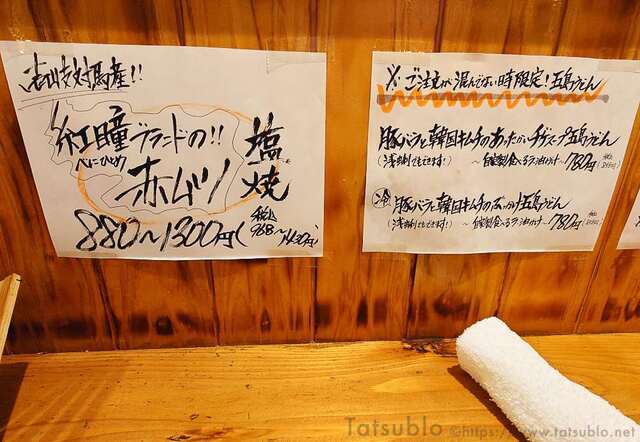 対馬産!!
紅瞳ブランドの!!
べにひとめ
赤ムツ
塩焼
880〜1300円(税込968〜1430円)
※ご注文が混んでない時限定!五島うどん
豚バラと韓国キムチのあったかいチゲスープ五島うどん
〜自家製食べるラー油かけ〜780円(税込858円)
冷 豚バラと韓国キムチのぶっかけ五島うどん
〜自家製食べるラー油かけ〜780円(税込858円)
Tatsublo ©https://www.tatsublo.net